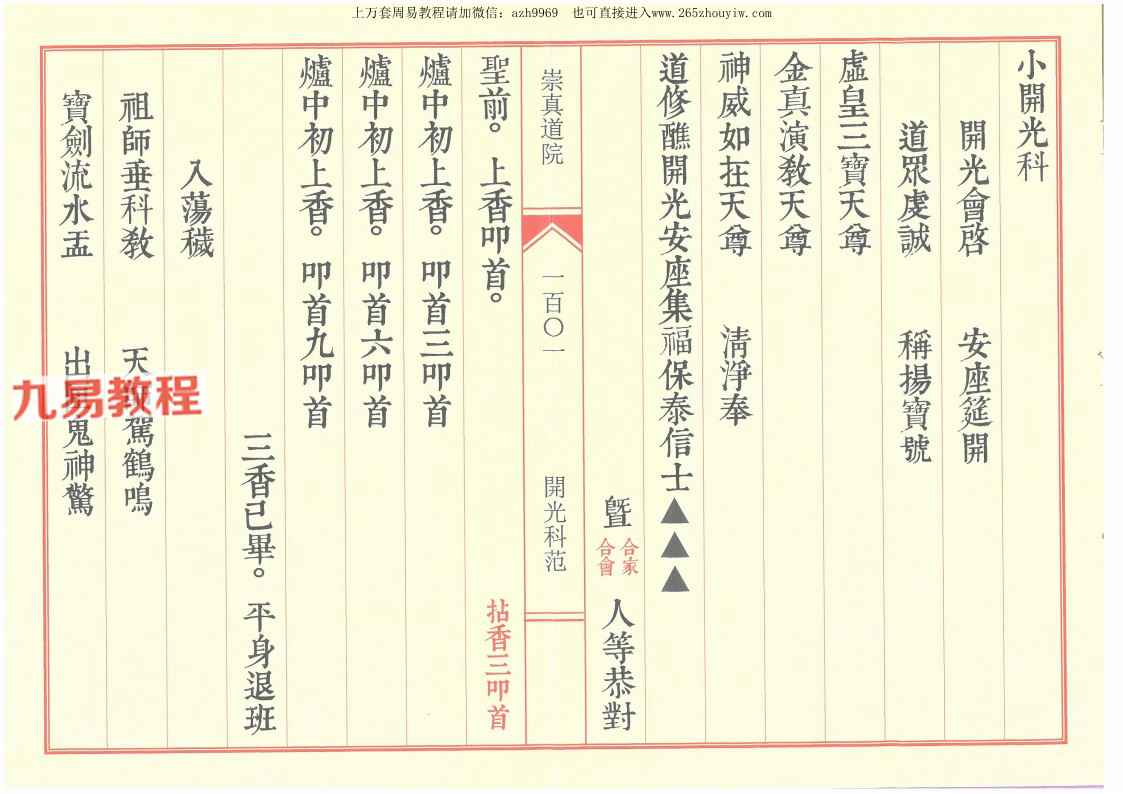 上万套周易教程请加微信：azh9969　也可直接进入www.265zhouyiw.com
小開光科
開光會啓　安座筵開
道眾虔誠　稱揚寶號
虛皇三寶天尊
金真演教天尊
神威如在天尊　清淨奉
道修醮開光安座集福保泰信士▲▲▲
暨 合家 合會 人等恭對
崇真道院　一百〇一　開光科范
聖前。上香叩首。　拈香三叩首
爐中初上香。叩首三叩首
爐中初上香。叩首六叩首
爐中初上香。叩首九叩首
三香已畢。平身退班
入蕩穢
祖師垂科教　天 駕鶴鳴
寶劍流水盂　出 鬼神驚
九易教程